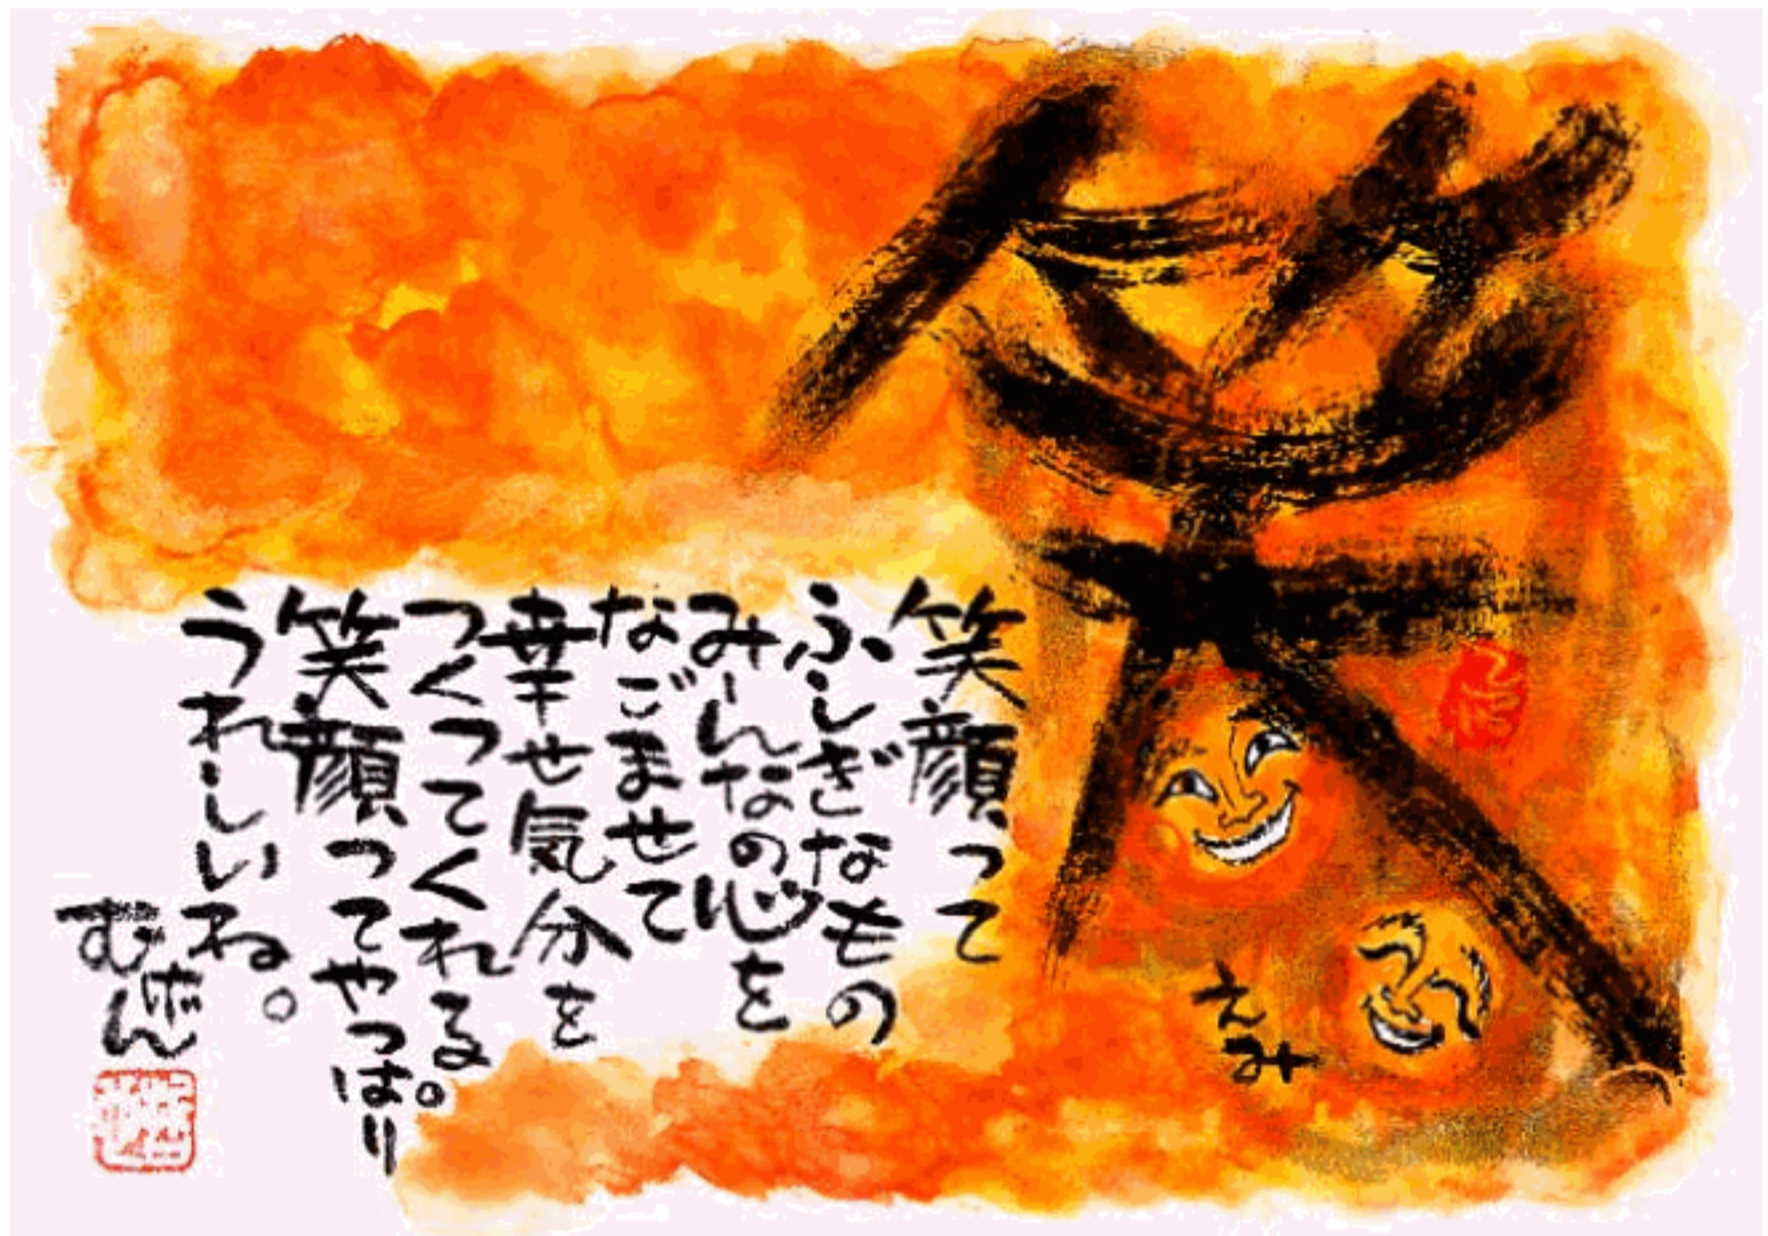 笑
えみ
笑顔って
ふしぎなもの
みーんなの心を
なごませて
幸せ気分を
つくってくれる。
笑顔ってやっぱり
うれしいね。